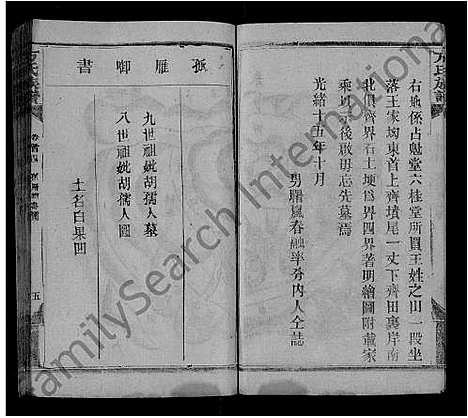 右地係占魁堂六桂堂所買王姓之山一段坐
落王家坳東首上齊墳尾一丈下齊田裏岸南
北俱齊界石土埂爲界四界著明繪圖附載家
乘以示後啟毋忘先墓焉
光緒十五年十月
男曙嵐春融率分內人仝誌
方氏族譜
孤雁啣書
九世祖妣胡孺人墓
八世祖妣胡孺人圖
土名白果凹
方氏族譜
卷首四
五
FamilySearch International